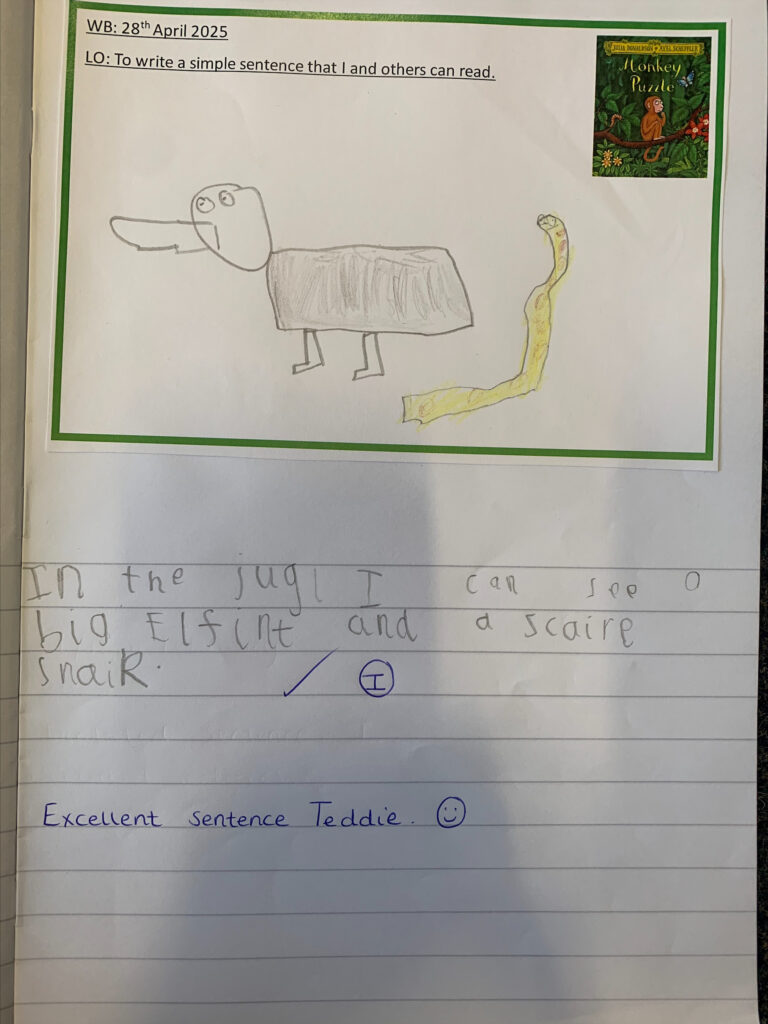 WB: 28th April 2025
LO: To write a simple sentence that I and others can read.
JULIA DONALDSON AXEL SCHEFFLER
Monkey
Puzzle
In the jugl I can see a
big Elfint and a scaire
snaik.
I
Excellent sentence Teddie.